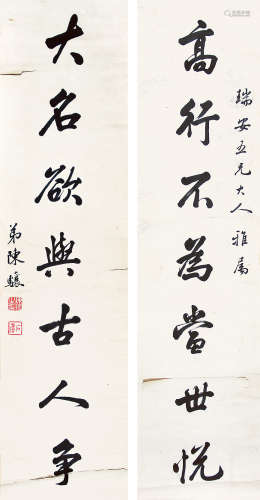 高行不為當世悅
瑞安五兄大人雅屬
大名欲與古人爭
弟陳驤